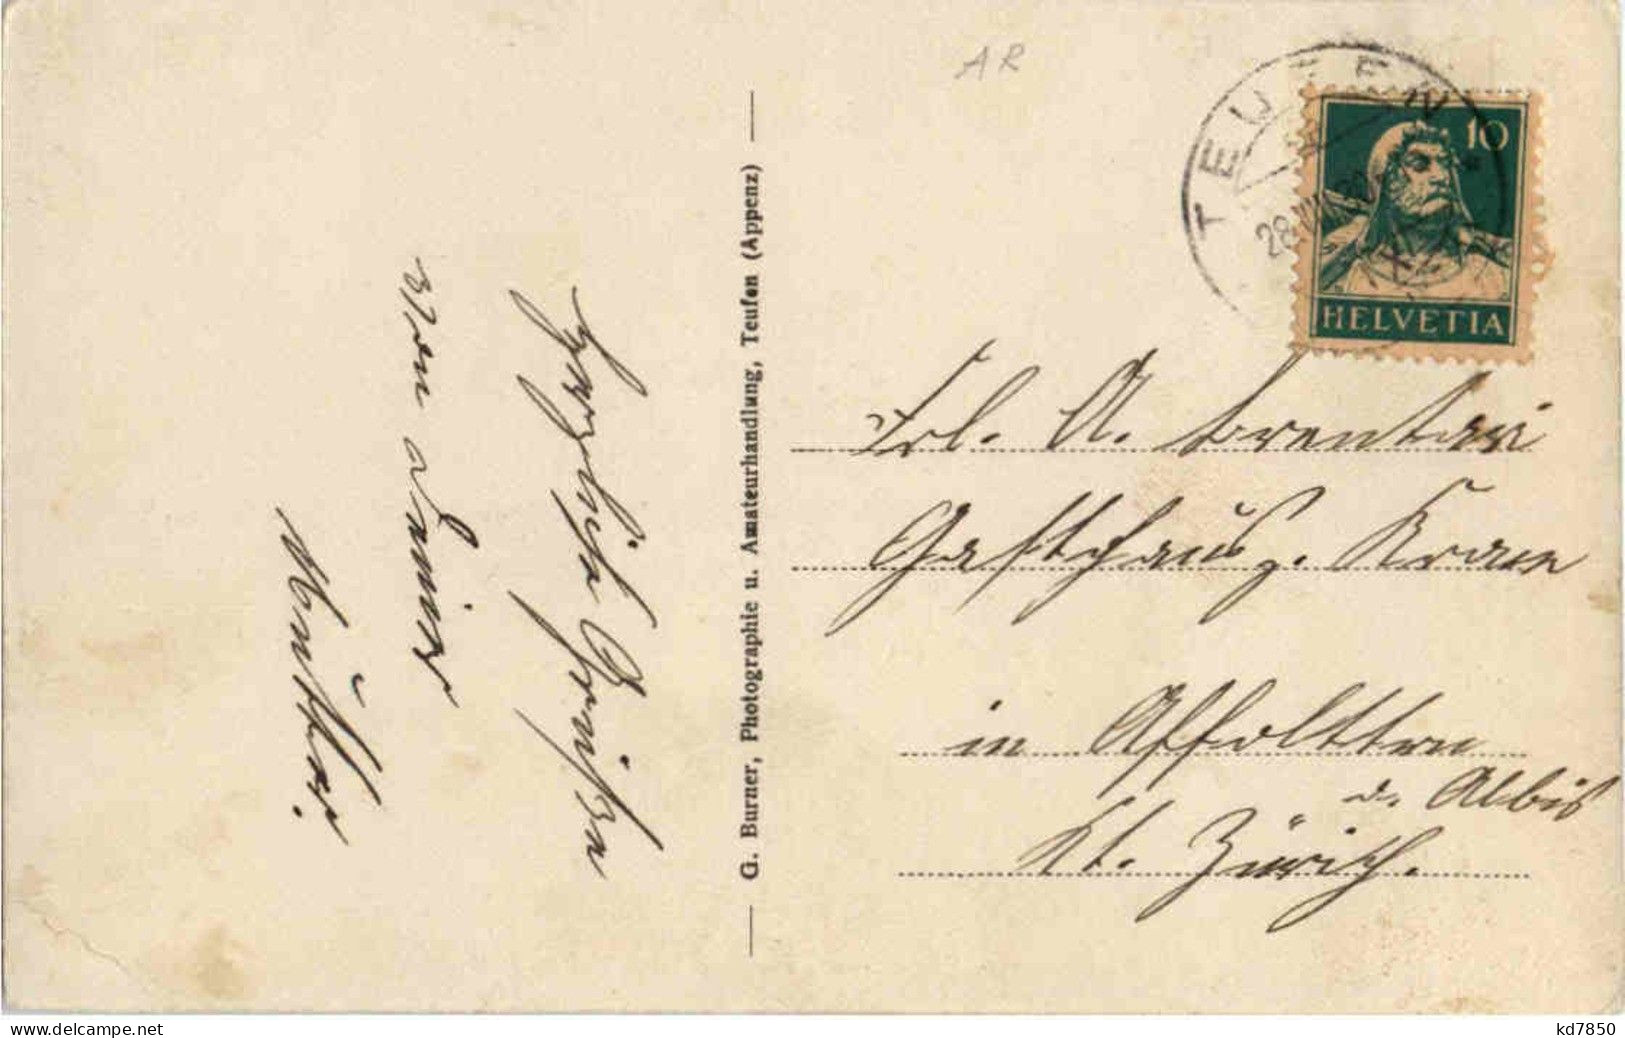 AR
TEUFEN
28.VII
10
HELVETIA
Herzliche Grüsse
von deiner
Mutter.
G. Burner, Photographie u. Amateurhandlung, Teufen (Appenz)
Frl. A. Brentari
Gasthaus z. Kronen
in Affoltern
a. Albis
Kt. Zürich.
kd7850